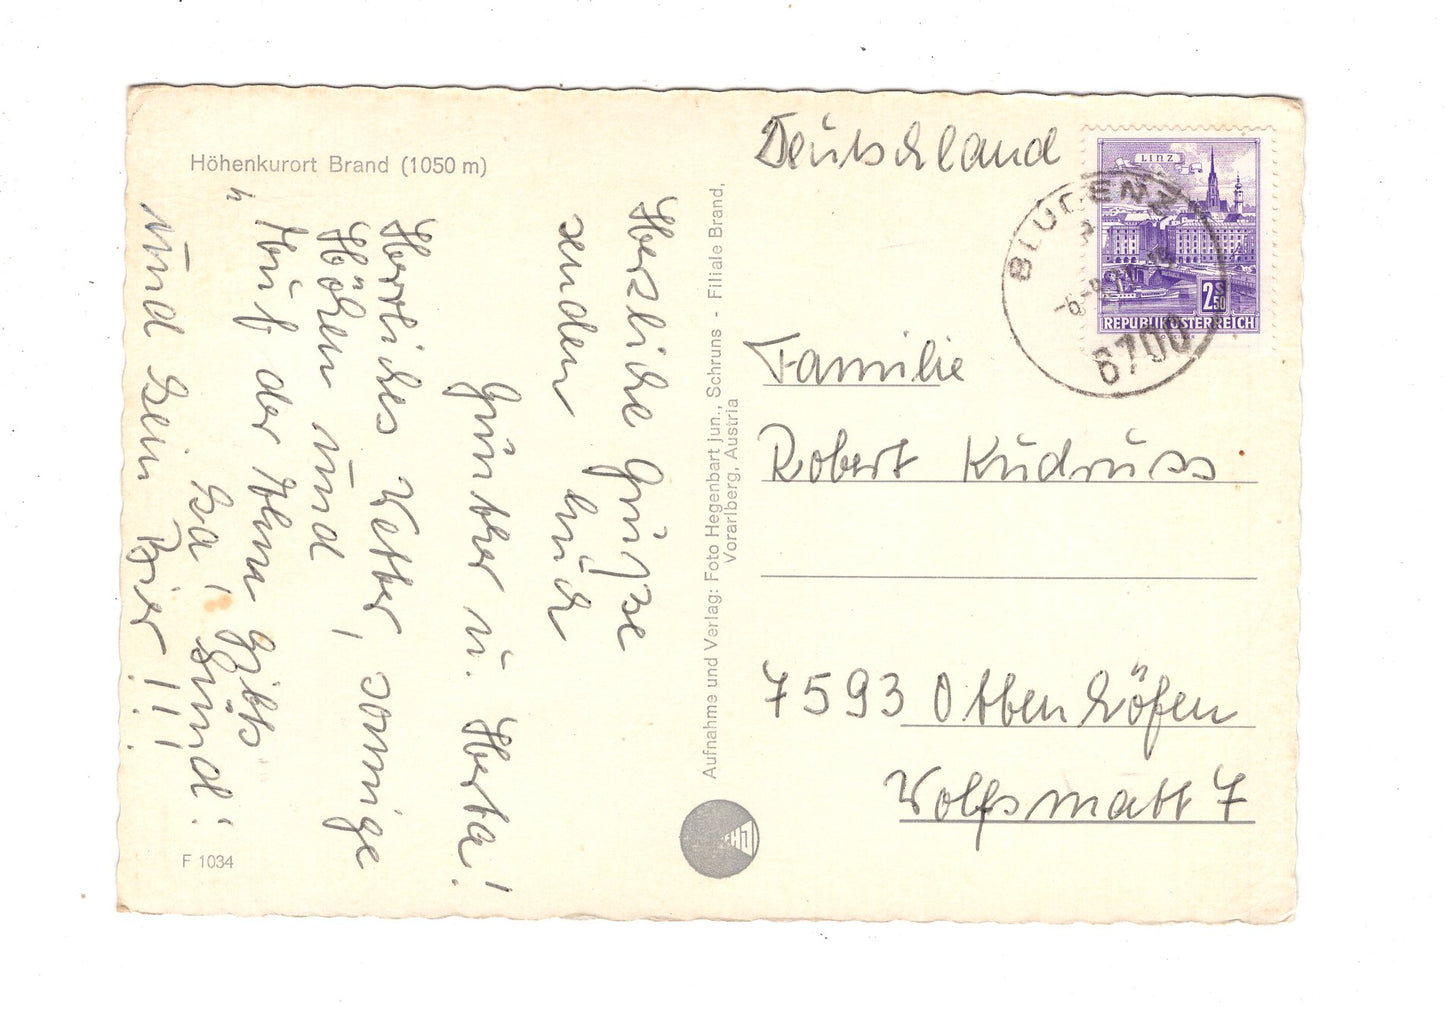 Höhenkurort Brand (1050 m)
Herzliche Grüße
senden Euch
Günther u. Herta!
Herrliches Wetter, sonnige
Höhen und
"Auf der Alm gibts
ka Sünd!
und kein Bier!!!
F 1034
Aufnahme und Verlag: Foto Hegenbart jun., Schruns - Filiale Brand,
Vorarlberg, Austria
HJ
Deutschland
LINZ
2 S 50
REPUBLIK ÖSTERREICH
BLUDENZ
6700
Familie
Robert Kudruss
7593 Ottenhöfen
Wolfsmatt 7